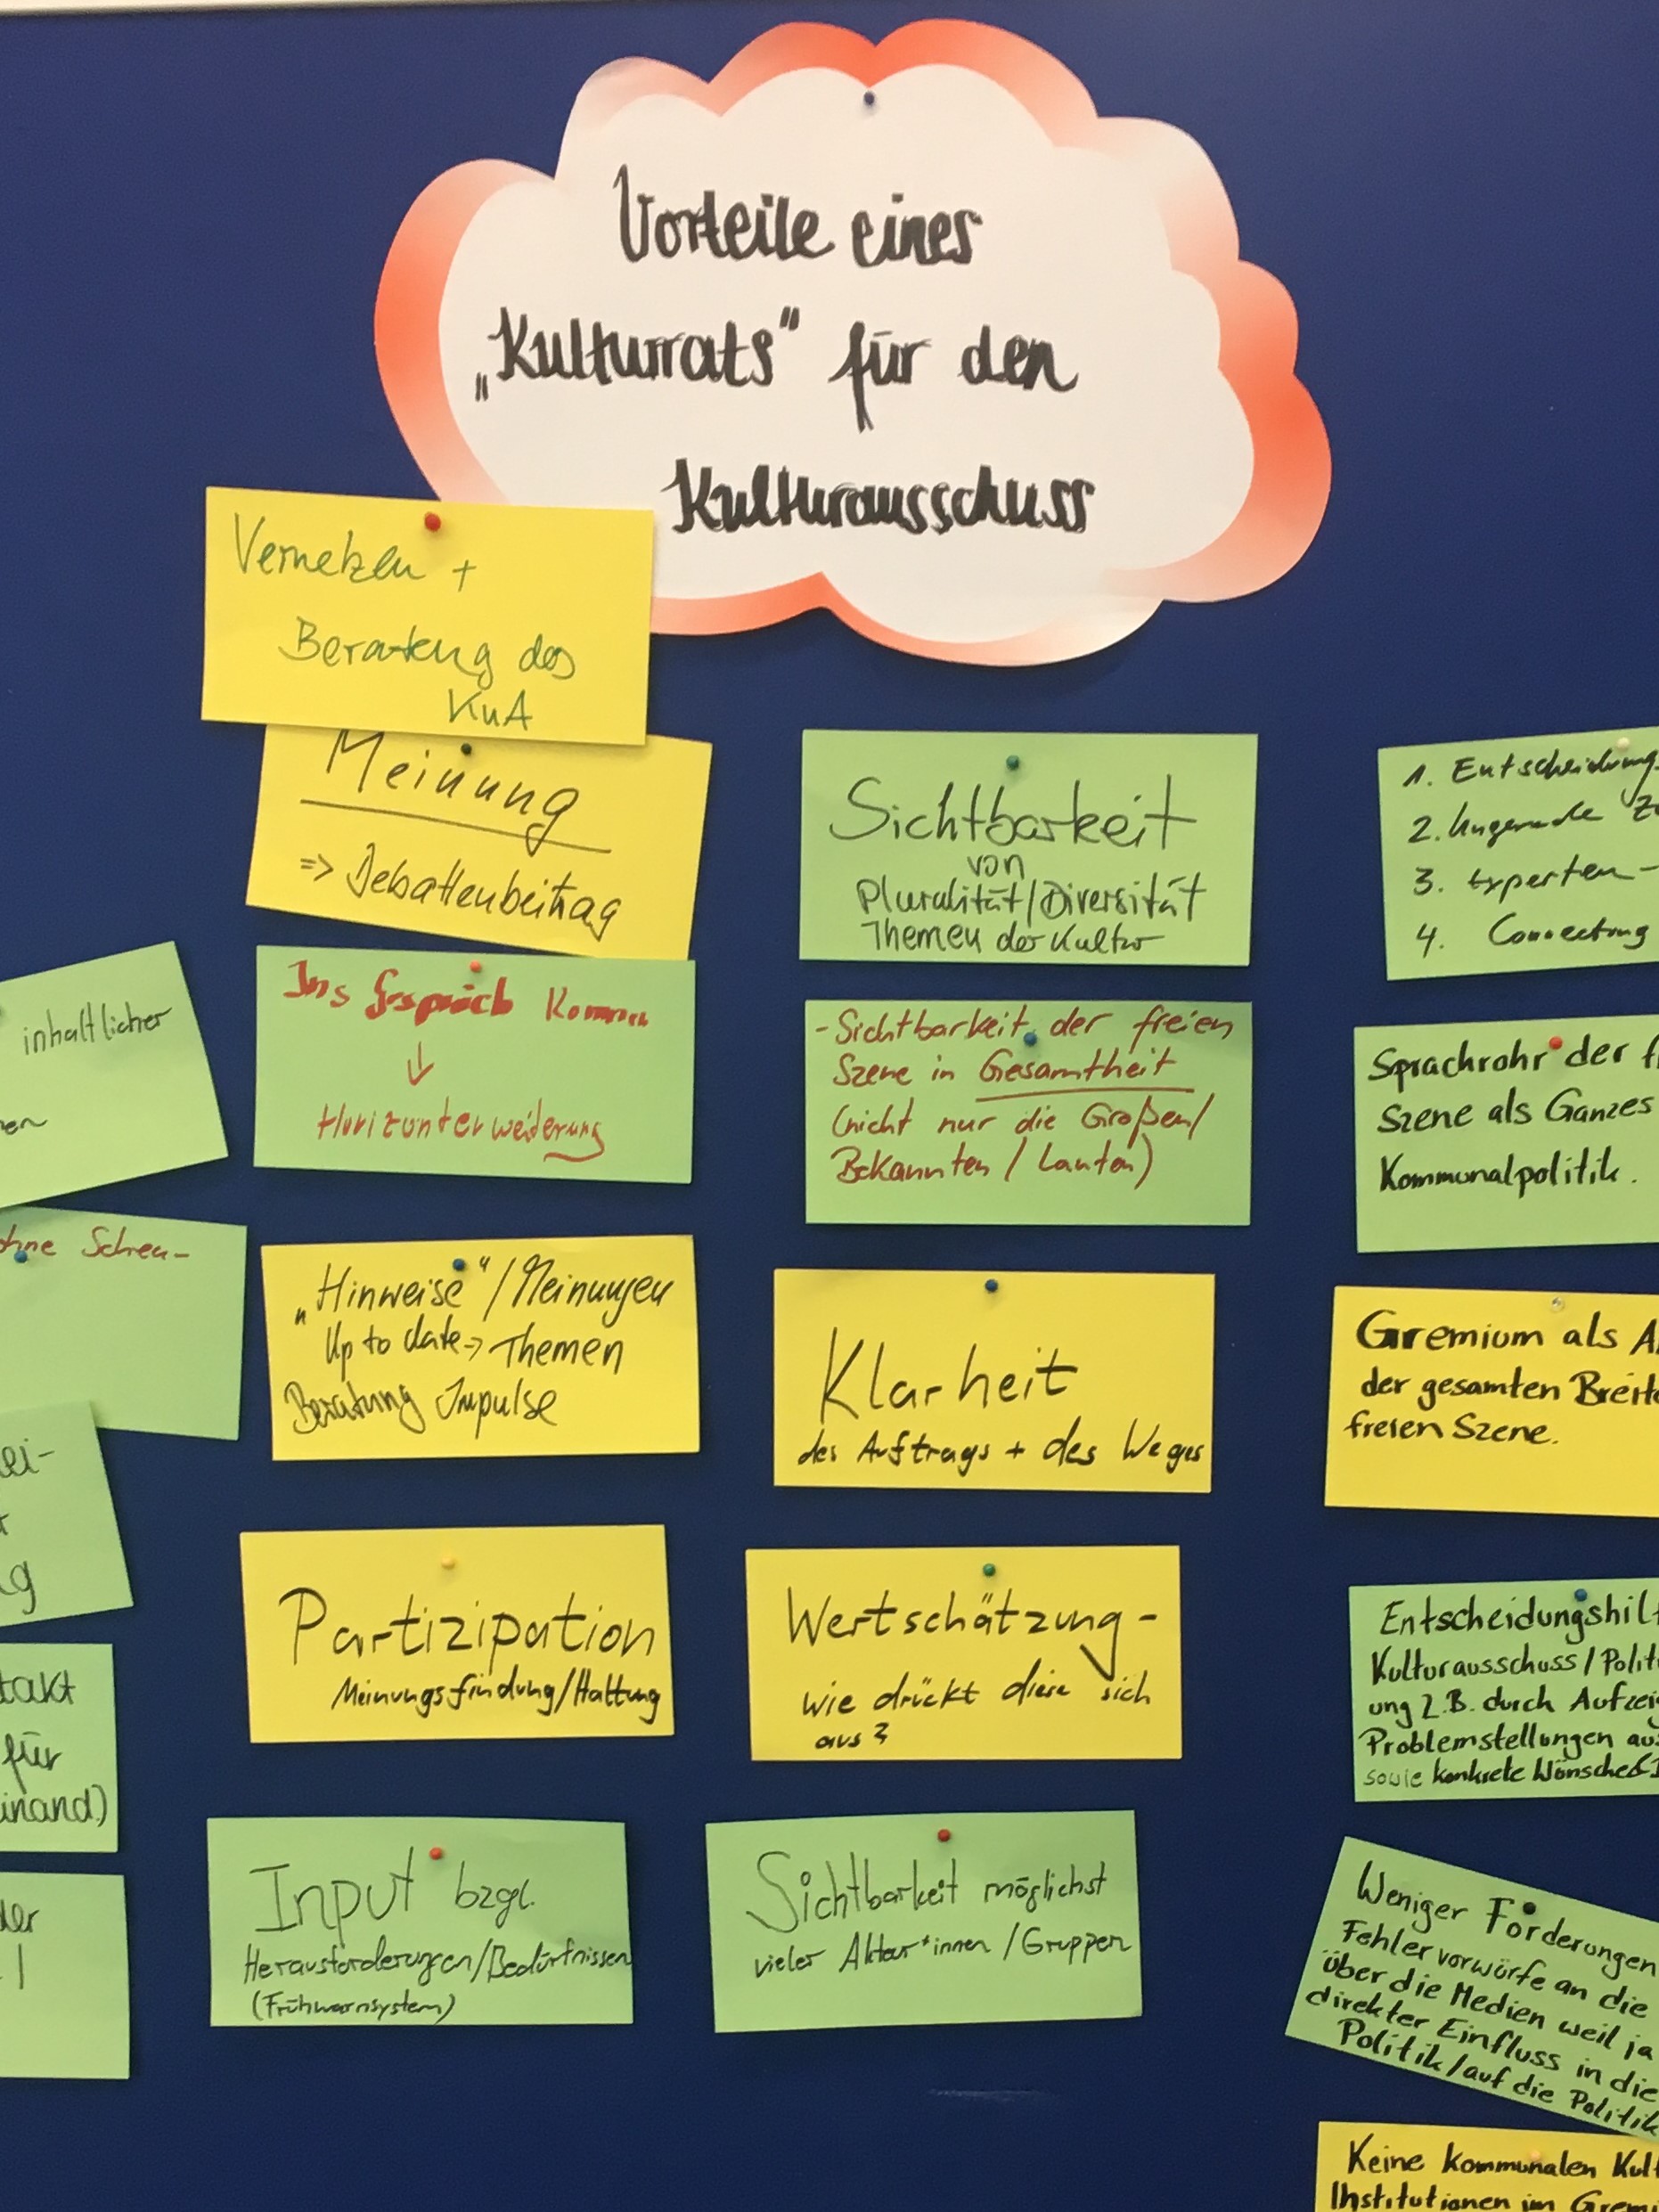 Vorteile eines
„Kulturrats" für den
Kulturausschuss
Vernetzen +
Beratung des
KuA
Meinung
=> Debattenbeitrag
Ins Gespräch kommen
↓
Horizonterweiterung
„Hinweise"/Meinungen
Up to date → Themen
Beratung Impulse
Partizipation
Meinungsfindung/Haltung
Input bzgl.
Herausforderungen/Bedürfnissen
(Frühwarnsystem)
Sichtbarkeit
von
Pluralität/Diversität
Themen der Kultur
- Sichtbarkeit der freien
Szene in Gesamtheit
(nicht nur die Großen/
Bekannten / Lauten)
Klarheit
des Auftrags + des Weges
Wertschätzung -
wie drückt diese sich
aus?
Sichtbarkeit möglichst
vieler Akteur*innen / Gruppen
inhaltlicher
ohne Scheu-
für
1. Entscheidung
2. Ungerade
3. Experten-
4. Connecting
Sprachrohr der
Szene als Ganzes
Kommunalpolitik.
Gremium als
der gesamten
freien Szene.
Entscheidungshil
Kulturausschuss / Polit
ung z.B. durch
Problemstellungen
sowie konkrete Wünsche
Weniger Forderungen
Fehlervorwürfe an die
über die Medien weil ja
direkter Einfluss in die
Politik/auf die Politik
Keine kommunalen
Institutionen im